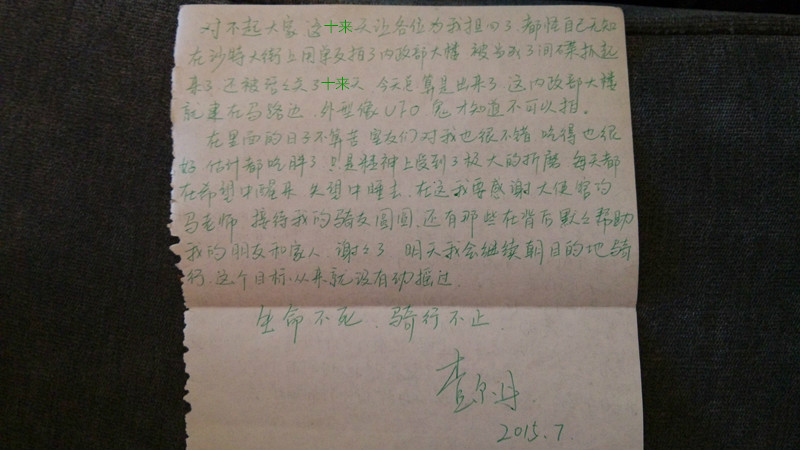 对不起大家 这十来天让各位为我担心了 都怪自己无知
在沙特大街上用单反拍了内政部大楼 被当成了间谍抓起
来了 还被关了十来天 今天总算是出来了 这内政部大楼
就建在马路边 外型像UFO 鬼才知道不可以拍.
在里面的日子不算苦 室友们对我也很不错 吃得也很
好 估计都吃胖了 只是精神上受到了极大的折磨 每天都
在希望中醒来 失望中睡去. 在这我要感谢大使馆的
马老师 接待我的骑友圆圆. 还有那些在背后默々帮助
我的朋友和家人. 谢々了 明天我会继续朝目的地骑
行. 这个目标从来就没有动摇过.
生命不死、骑行不止.
2015.7